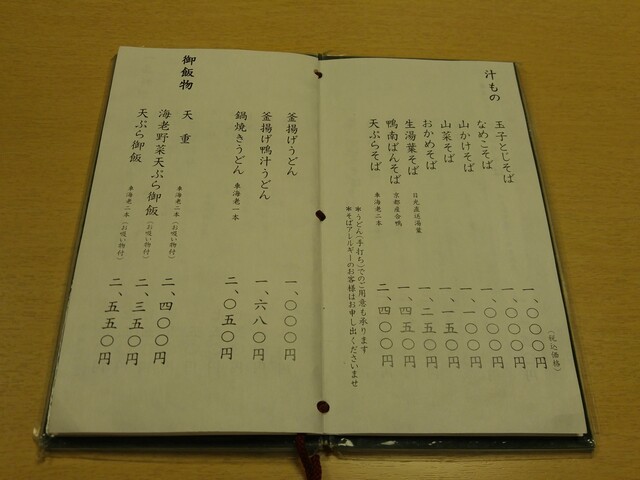 汁もの
(税込価格)
玉子とじそば 一、〇〇〇円
なめこそば 一、〇〇〇円
山かけそば 一、〇〇〇円
山菜そば 一、一〇〇円
おかめそば 一、一五〇円
生湯葉そば 日光直送湯葉 一、二五〇円
鴨南ばんそば 京都産合鴨 一、四五〇円
天ぷらそば 車海老二本 二、四〇〇円
※うどん(手打ち)でのご用意も承ります
※そばアレルギーのお客様はお申し出くださいませ
釜揚げうどん 一、〇〇〇円
釜揚げ鴨汁うどん 一、六八〇円
鍋焼きうどん 車海老一本 二、〇五〇円
御飯物
天重 車海老二本(お吸い物付) 二、四〇〇円
海老野菜天ぷら御飯 (お吸い物付) 二、三五〇円
天ぷら御飯 車海老二本(お吸い物付) 二、五五〇円